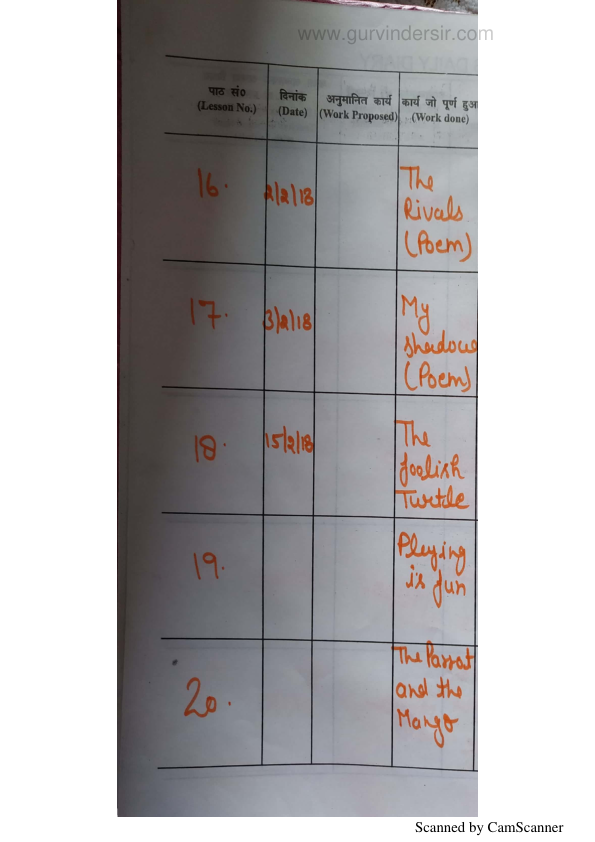 www.gurvindersir.com
पाठ सं०
(Lesson No.)
दिनांक
(Date)
अनुमानित कार्य
(Work Proposed)
कार्य जो पूर्ण हुआ
(Work done)
16.
2/2/18
The
Rivals
(Poem)
17.
3/2/18
My
Shadow
(Poem)
18.
15/2/18
The
foolish
Turtle
19.
Playing
is fun
20.
The Parrot
and the
Mango
Scanned by CamScanner